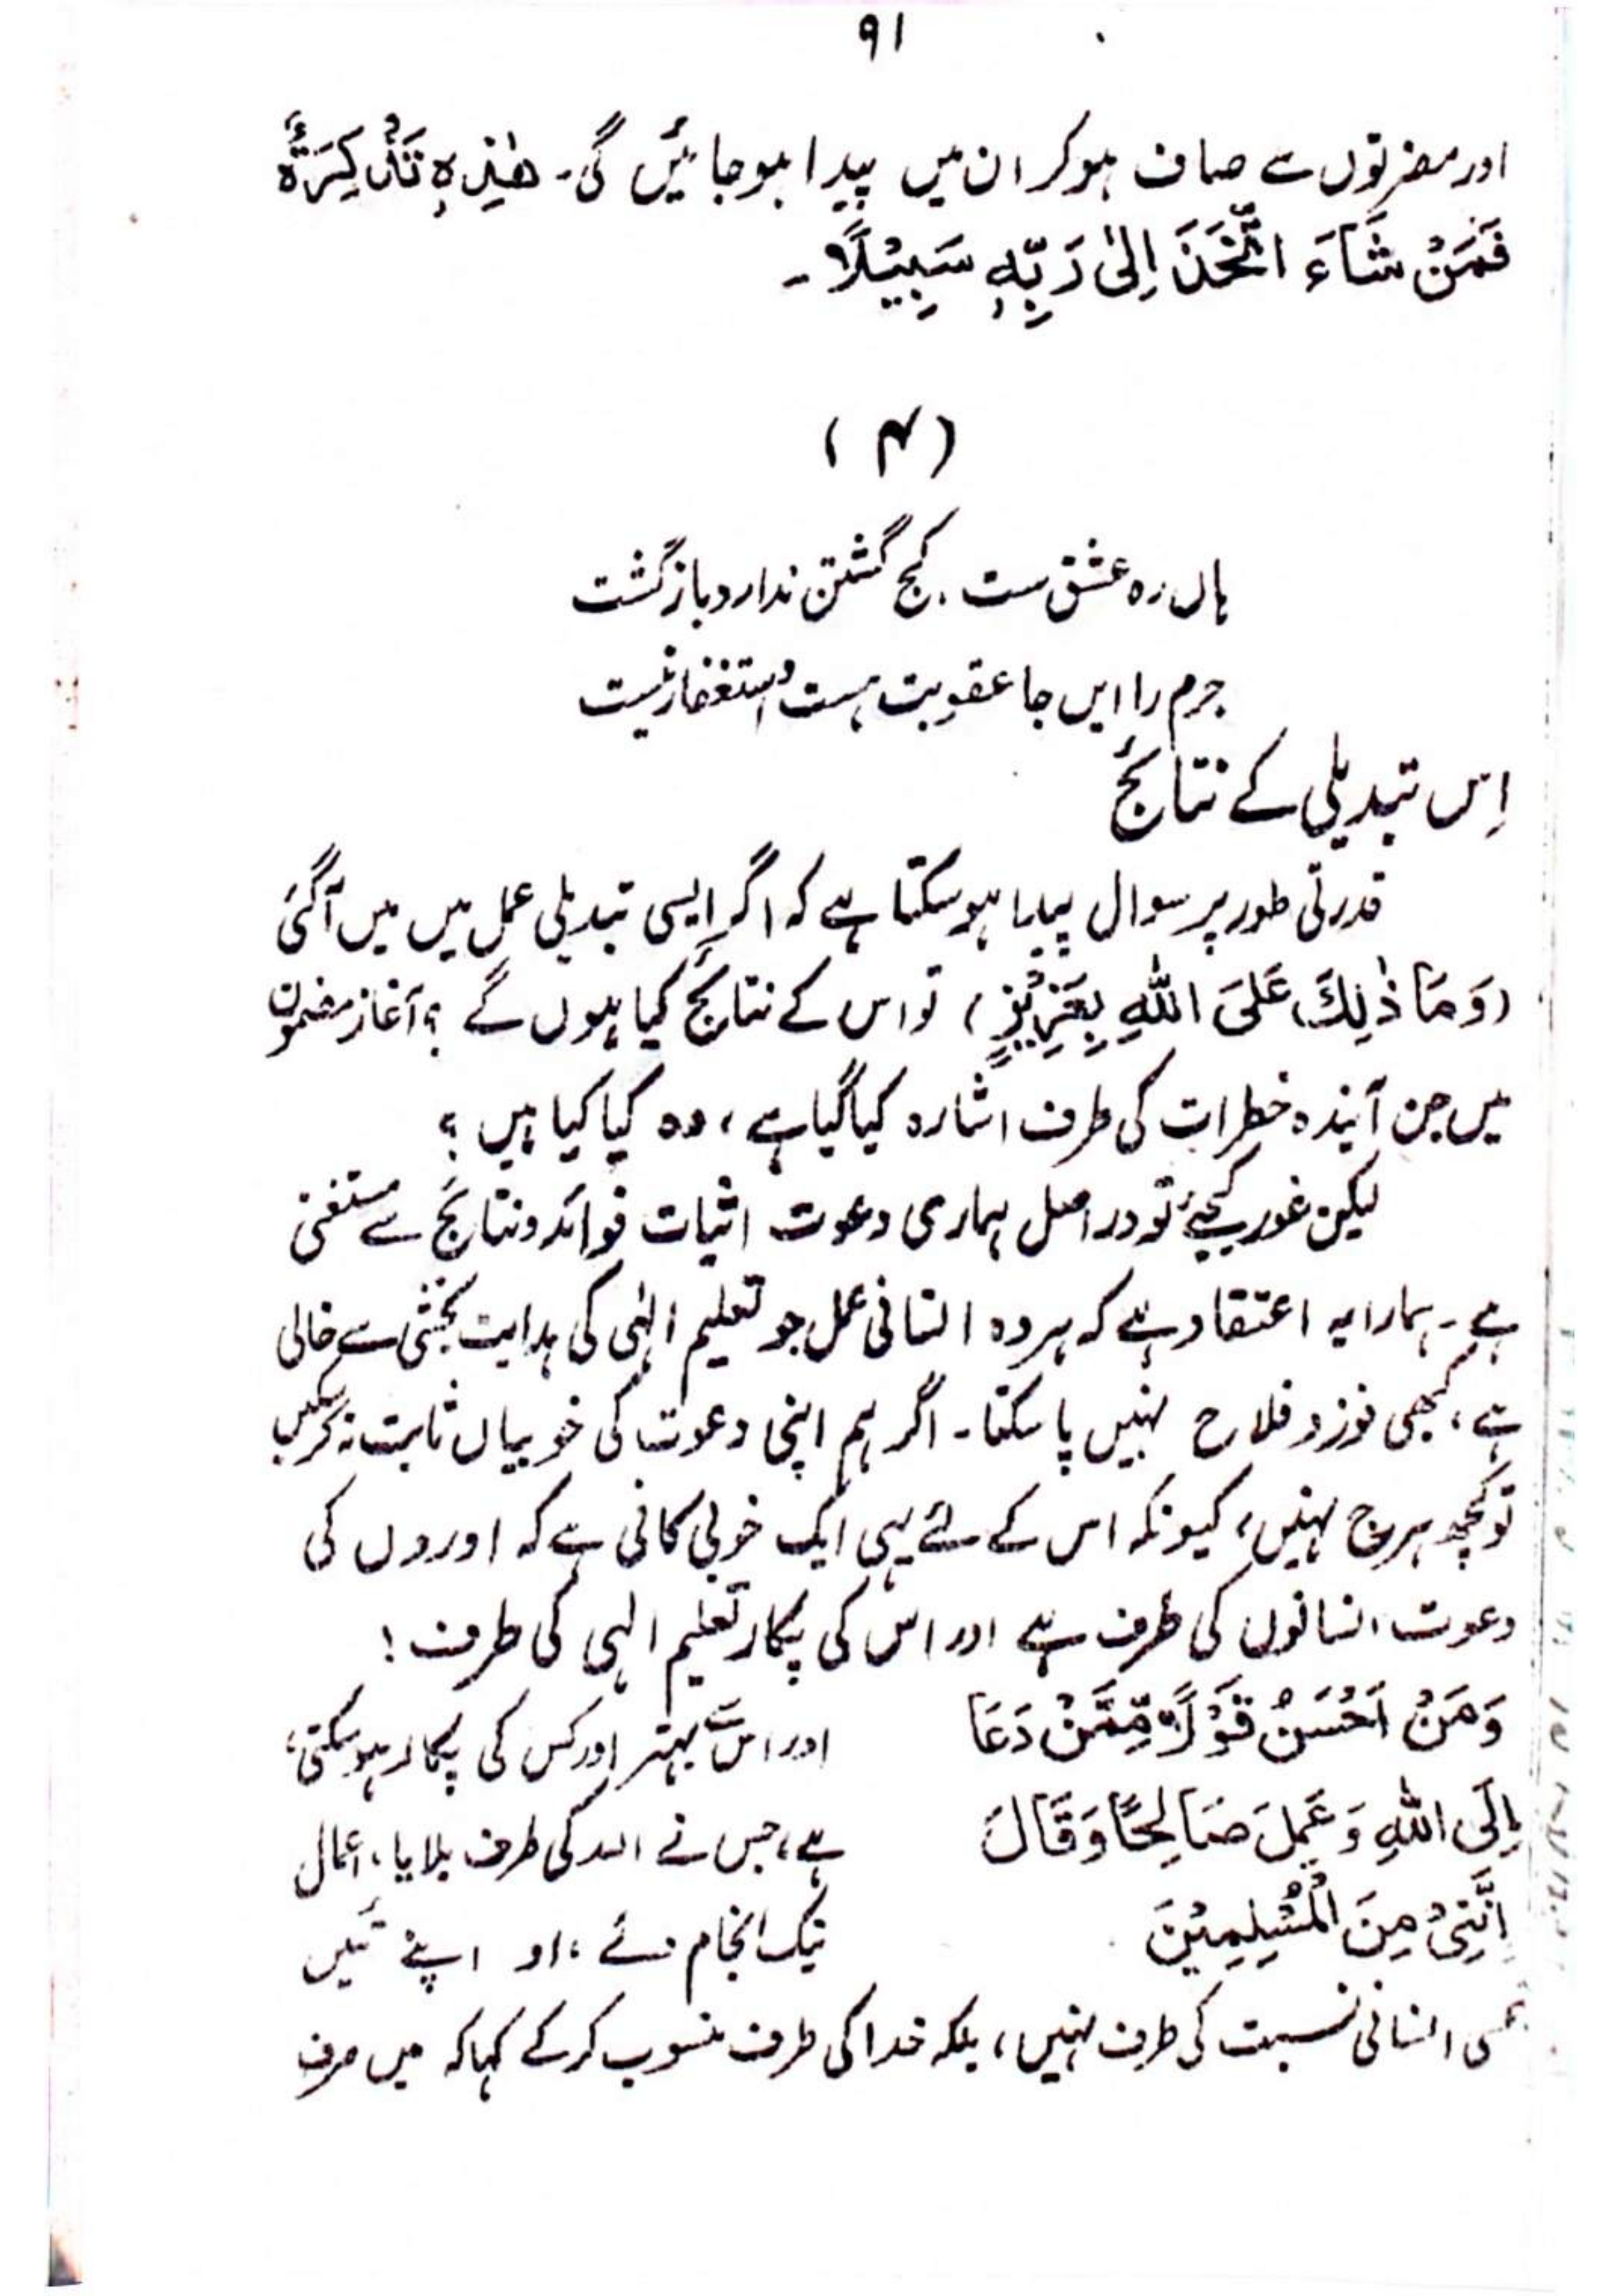 ۹۱
اور مضرتوں سے صاف ہو کر ان میں پیدا ہو جائیں گی۔ هٰذِهٖ تَذْكِرَةٌ
فَمَنْ شَآءَ اتَّخَذَ اِلٰى رَبِّهٖ سَبِيْلًا۔
(۴)
ہاں رہ عشق ست، کج گشتن ندارد باز گشت
جرم را ایں جا عقوبت ہست و استغفار نیست
اِس تبدیلی کے نتائج
قدرتی طور پر سوال پیدا ہو سکتا ہے کہ اگر ایسی تبدیلی عمل میں میں آگئی
(وَمَا ذٰلِكَ عَلَى اللّٰهِ بِعَزِيْزٍ) تو اس کے نتائج کیا ہوں گے ؟ آغاز مضمون
میں جن آیندہ خطرات کی طرف اشارہ کیا گیا ہے، وہ کیا کیا ہیں ؟
لیکن غور کیجئے تو در اصل ہماری دعوت اثبات فوائد و نتائج سے مستغنی
ہے۔ ہمارا یہ اعتقاد ہے کہ ہر وہ انسانی عمل جو تعلیم الٰہی کی ہدایت بخشی سے خالی
ہے، کبھی فوز و فلاح نہیں پا سکتا۔ اگر ہم اپنی دعوت کی خوبیاں ثابت نہ کر سکیں
تو کچھ ہرج نہیں، کیونکہ اس کے لئے یہی ایک خوبی کافی ہے کہ اوروں کی
دعوت انسانوں کی طرف ہے اور اس کی پکار تعلیم الہی کی طرف !
وَمَنْ اَحْسَنُ قَوْلًا مِّمَّنْ دَعَا اور اس سے بہتر اور کس کی پکار ہو سکتی،
اِلَى اللّٰهِ وَعَمِلَ صَالِحًا وَّقَالَ ہے، جس نے اللہ کی طرف بلایا، اعمال
اِنَّنِىْ مِنَ الْمُسْلِمِيْنَ نیک انجام دئے، اور اپنے تئیں
کسی انسانی نسبت کی طرف نہیں، بلکہ خدا کی طرف منسوب کر کے کہا کہ میں صرف